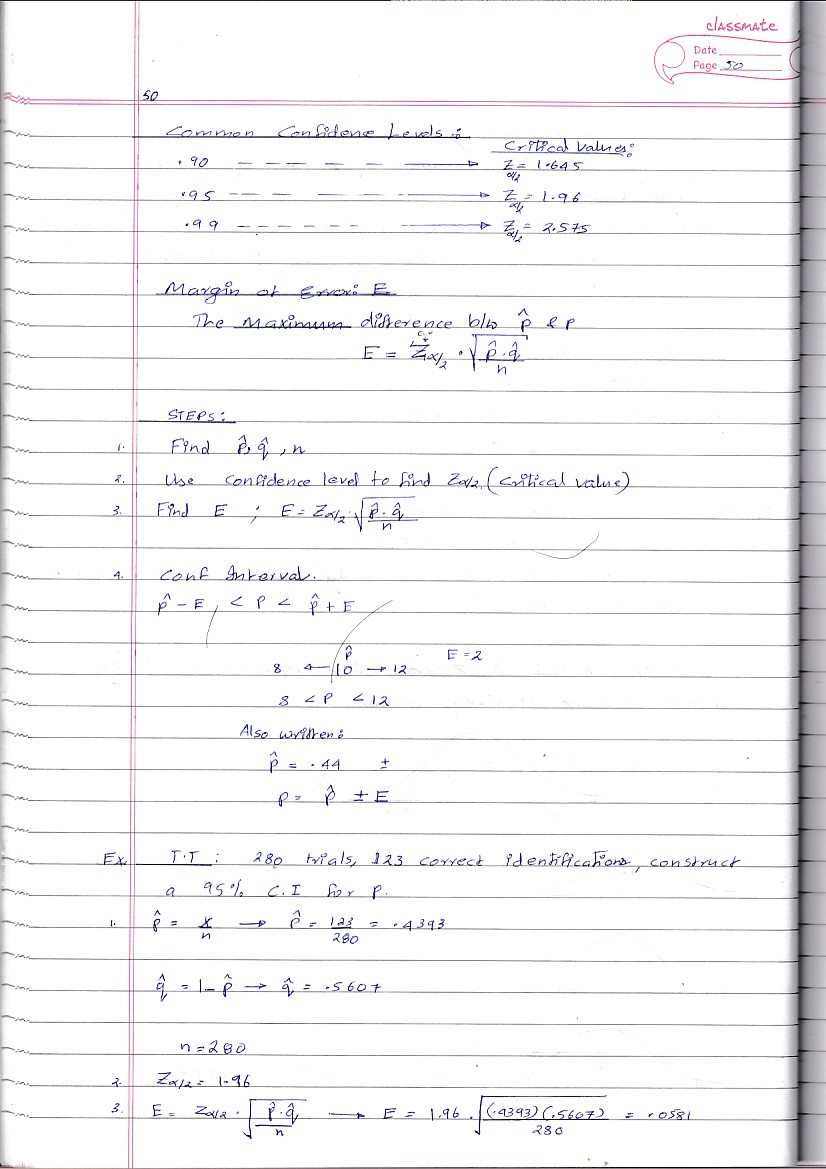 classmate
Date
Page 50
50
Common Confidence Levels:
Critical Values:
.90 — — — — —→ Zα/2 = 1.645
.95 — — — — —→ Zα/2 = 1.96
.99 — — — — —→ Zα/2 = 2.575
Margin of Error: E
The Maximum difference b/w p̂ & p
c.v
E = Zα/2 · √(p̂·q̂/n)
STEPS:
1. Find p̂, q̂, n
2. Use confidence level to find Zα/2 (critical value)
3. Find E ; E = Zα/2 · √(p̂·q̂/n)
4. Conf Interval.
p̂ - E, < P < p̂ + E
p̂ E = 2
8 ← 10 → 12
8 < P < 12
Also written:
p̂ = .44 ±
p = p̂ ± E
Ex. T.T : 280 trials, 123 correct identifications, construct
a 95% C.I for p.
1. p̂ = x/n → p̂ = 123/280 = .4393
q̂ = 1 - p̂ → q̂ = .5607
n = 280
2. Zα/2 = 1.96
3. E = Zα/2 · √(p̂·q̂/n) → E = 1.96 · √((.4393)(.5607)/280) = .0581